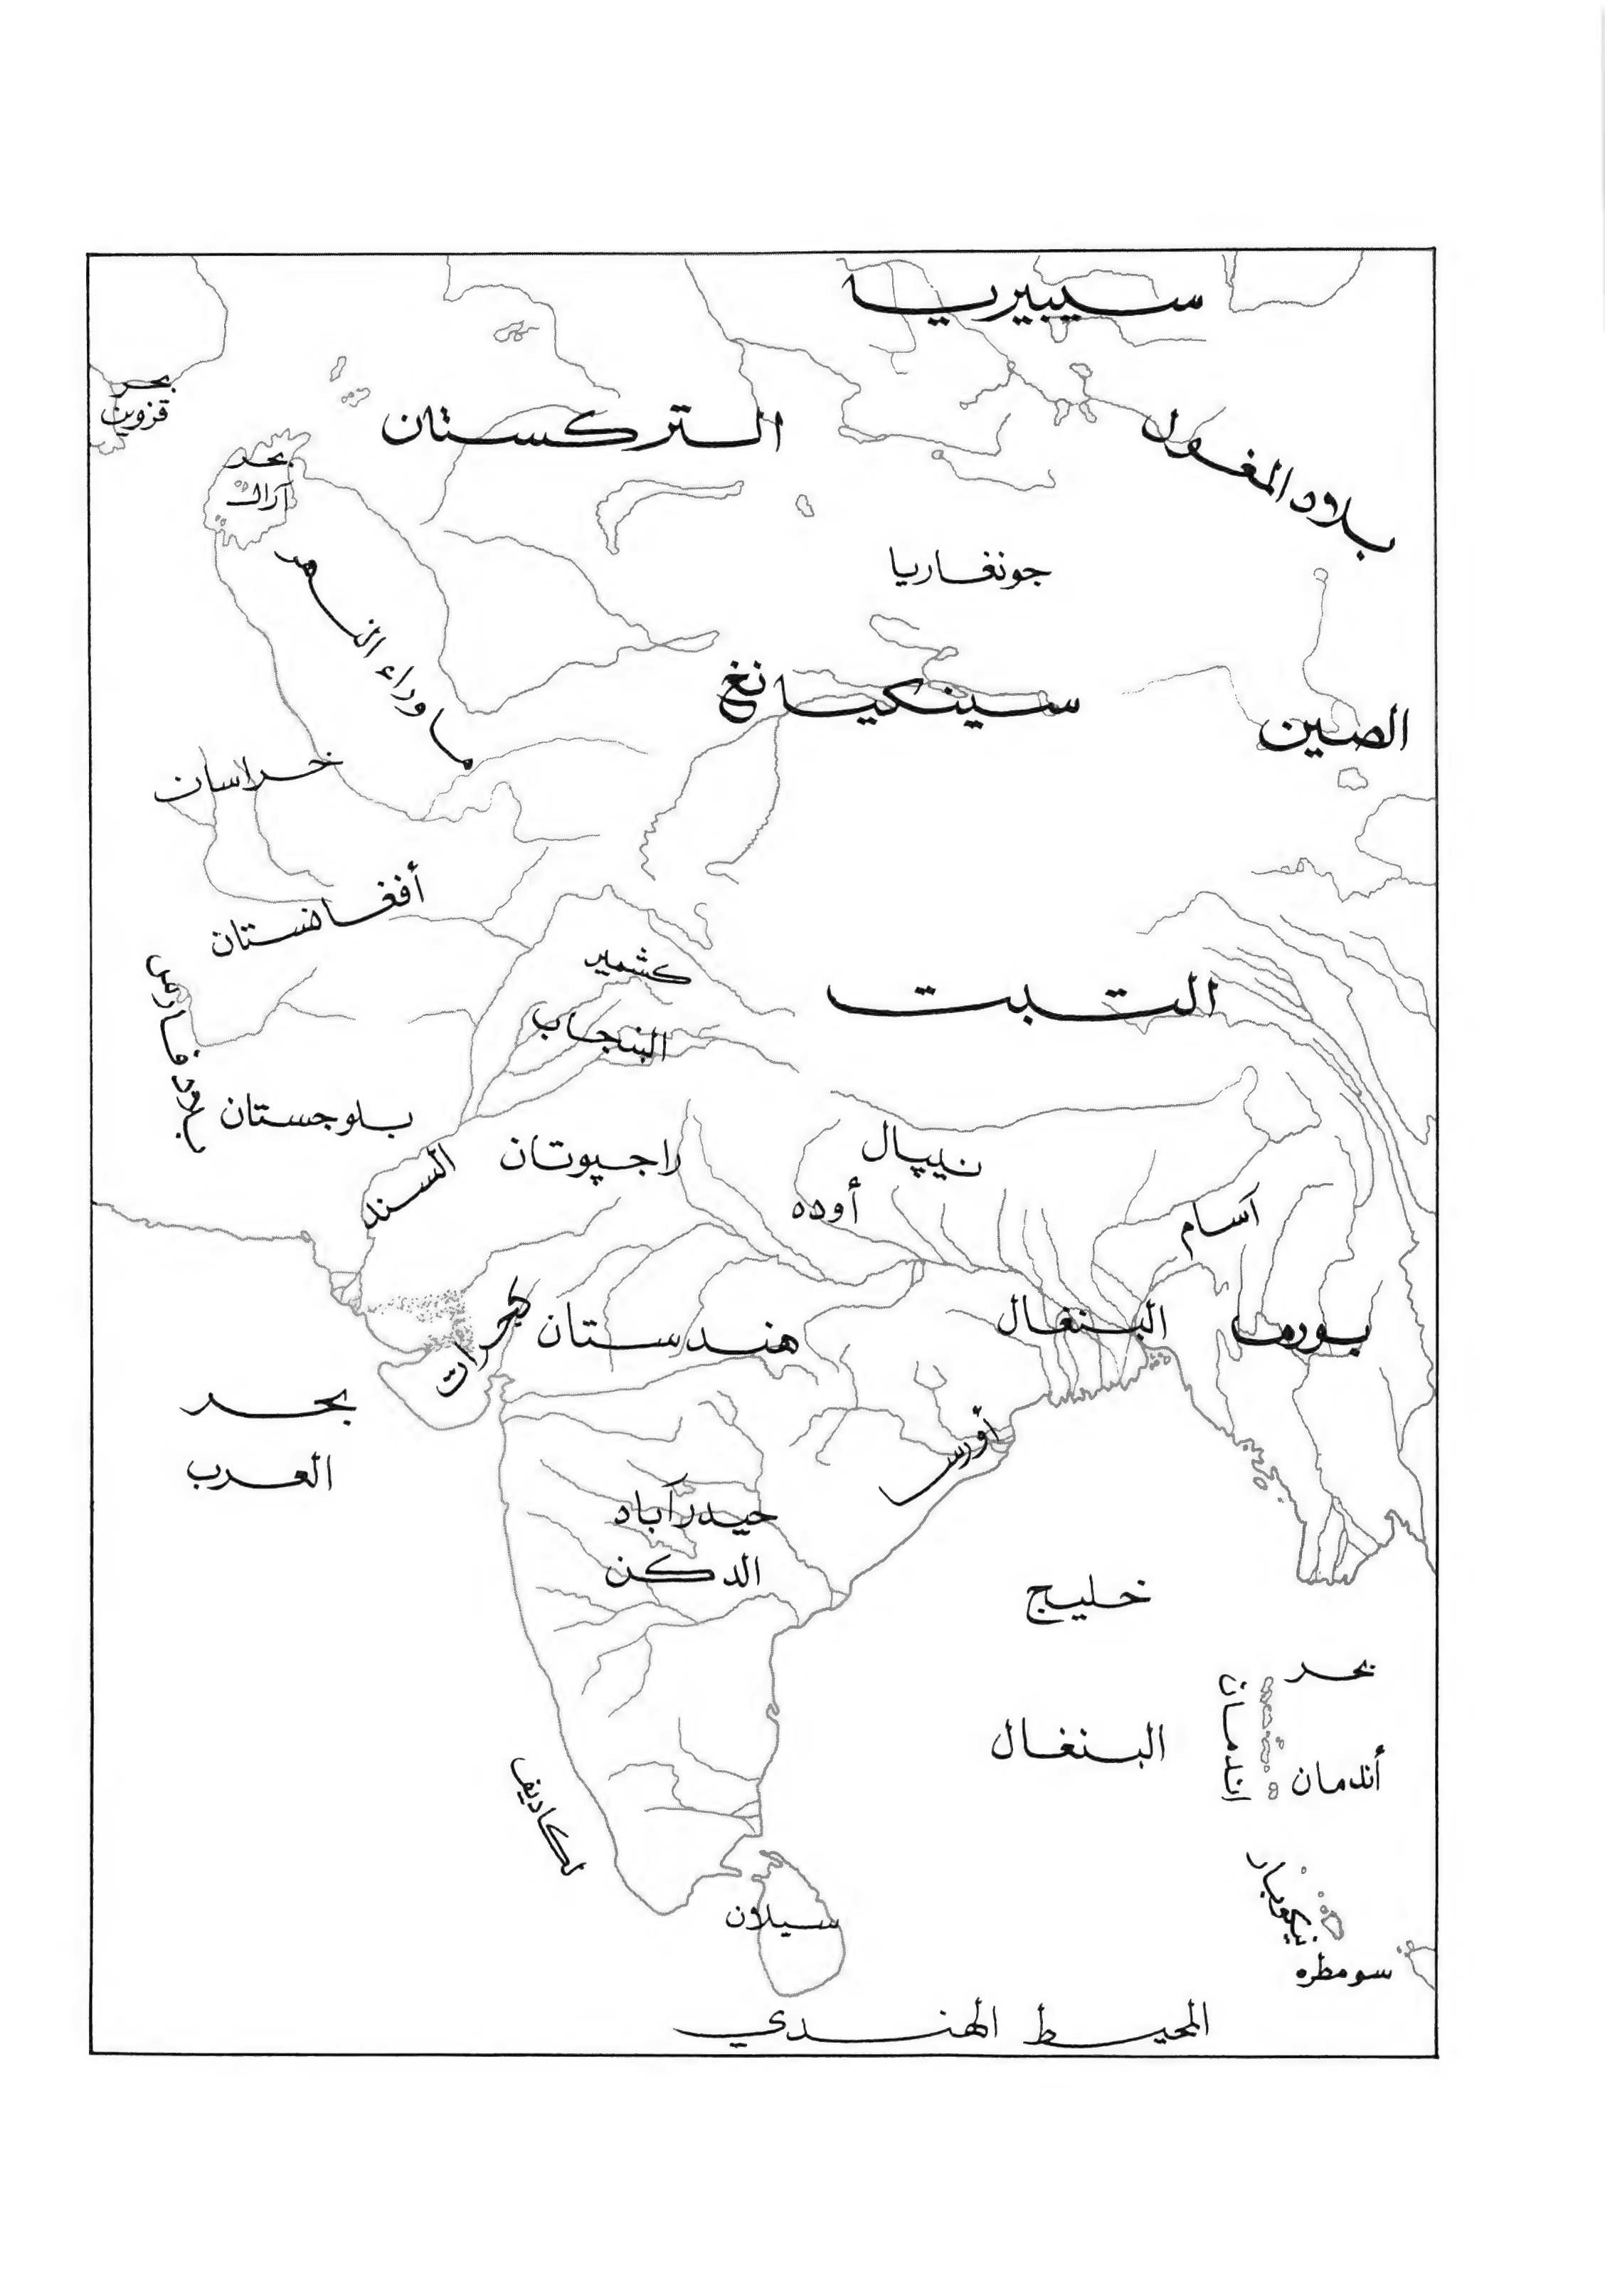 سيبيريا
بحر
قزوين
التركستان
بلاد المغول
بحر
آرال
جونغاريا
ما وراء النهر
سينكيانغ
الصين
خراسان
أفغانستان
كشمير
التبت
البنجاب
بلاد فارس
بلوجستان
السند
راجپوتان
نيپال
أوده
آسام
كجرات
هندستان
البنغال
بورما
بحر
العرب
حيدرآباد
الدكن
خليج
البنغال
بحر
أندمان
اندمان
لكاديف
سيلان
نيكوبار
سومطره
المحيط الهندي